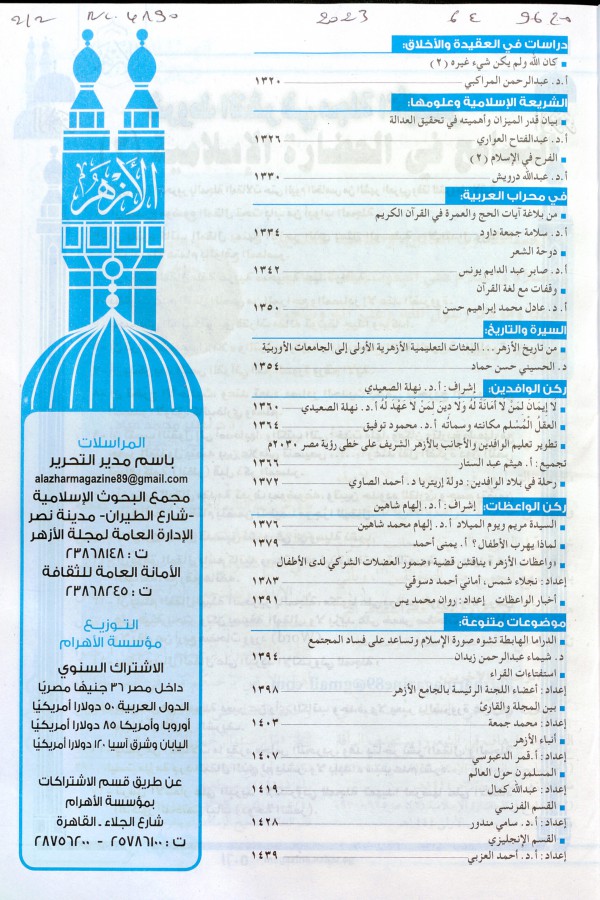 2/2 N.C. 4890 2023 64 9620
دراسات في العقيدة والأخلاق:
كان الله ولم يكن شيء غيره (٢)
أ.د. عبدالرحمن المراكبي ١٣٢٠
الشريعة الإسلامية وعلومها:
بيان قدر الميزان وأهميته في تحقيق العدالة
أ.د. عبدالفتاح العواري ١٣٢٦
الفرح في الإسلام (٢)
أ.د. عبدالله درويش ١٣٣٠
في محراب العربية:
من بلاغة آيات الحج والعمرة في القرآن الكريم
أ.د. سلامة جمعة داود ١٣٣٤
دوحة الشعر
أ.د. صابر عبد الدايم يونس ١٣٤٢
وقفات مع لغة القرآن
أ.د. عادل محمد إبراهيم حسن ١٣٥٠
السيرة والتاريخ:
من تاريخ الأزهر... البعثات التعليمية الأزهرية الأولى إلى الجامعات الأوربيّة
د. الحسيني حسن حماد ١٣٥٤
ركن الوافدين: إشراف: أ.د. نهلة الصعيدي
لا إيمان لمن لا أمانة له ولا دين لمن لا عهد له أ.د. نهلة الصعيدي ١٣٦٠
العقل المُسلم مكانته وسماته أ.د. محمود توفيق ١٣٦٤
تطوير تعليم الوافدين والأجانب بالأزهر الشريف على خطى رؤية مصر ٢٠٣٠م
تجميع: أ. هيثم عبد الستار ١٣٦٦
رحلة في بلاد الوافدين: دولة إريتريا د. أحمد الصاوي ١٣٧٢
ركن الواعظات: إشراف: أ.د. إلهام شاهين
السيدة مريم ويوم الميلاد أ.د. إلهام محمد شاهين ١٣٧٦
لماذا يهرب الأطفال؟ أ. يمنى أحمد ١٣٧٩
«واعظات الأزهر» يناقشن قضية «ضمور العضلات الشوكي لدى الأطفال
إعداد: نجلاء شمس، أماني أحمد دسوقي ١٣٨٣
أخبار الواعظات إعداد: روان محمد يس ١٣٩١
موضوعات متنوعة:
الدراما الهابطة تشوه صورة الإسلام وتساعد على فساد المجتمع
د. شيماء عبدالرحمن زيدان ١٣٩٤
استفتاءات القراء
إعداد: أعضاء اللجنة الرئيسة بالجامع الأزهر ١٣٩٨
بين المجلة والقارئ
إعداد: محمد جمعة ١٤٠٣
أنباء الأزهر
إعداد: أ.قمر الدعبوسي ١٤٠٧
المسلمون حول العالم
إعداد: عبدالله كمال ١٤١٩
القسم الفرنسي
إعداد: أ.د. سامي مندور ١٤٢٨
القسم الإنجليزي
إعداد: أ.د. أحمد العزبي ١٤٣٩
الأزهر
المراسلات
باسم مدير التحرير
alazharmagazine89@gmail.com
مجمع البحوث الإسلامية
-شارع الطيران- مدينة نصر
الإدارة العامة لمجلة الأزهر
ت: ٢٣٨٦٨١٤٨
الأمانة العامة للثقافة
ت: ٢٣٨٦٨٢٤٥
التوزيع
مؤسسة الأهرام
الاشتراك السنوي
داخل مصر ٣٦ جنيها مصريًا
الدول العربية ٥٠ دولارا أمريكيًا
أوروبا وأمريكا ٨٥ دولارا أمريكيًا
اليابان وشرق آسيا ١٢٠ دولارا أمريكيًا
عن طريق قسم الاشتراكات
بمؤسسة الأهرام
شارع الجلاء - القاهرة
ت: ٢٥٧٨٦١٠٠ - ٢٨٧٥٦٢٠٠